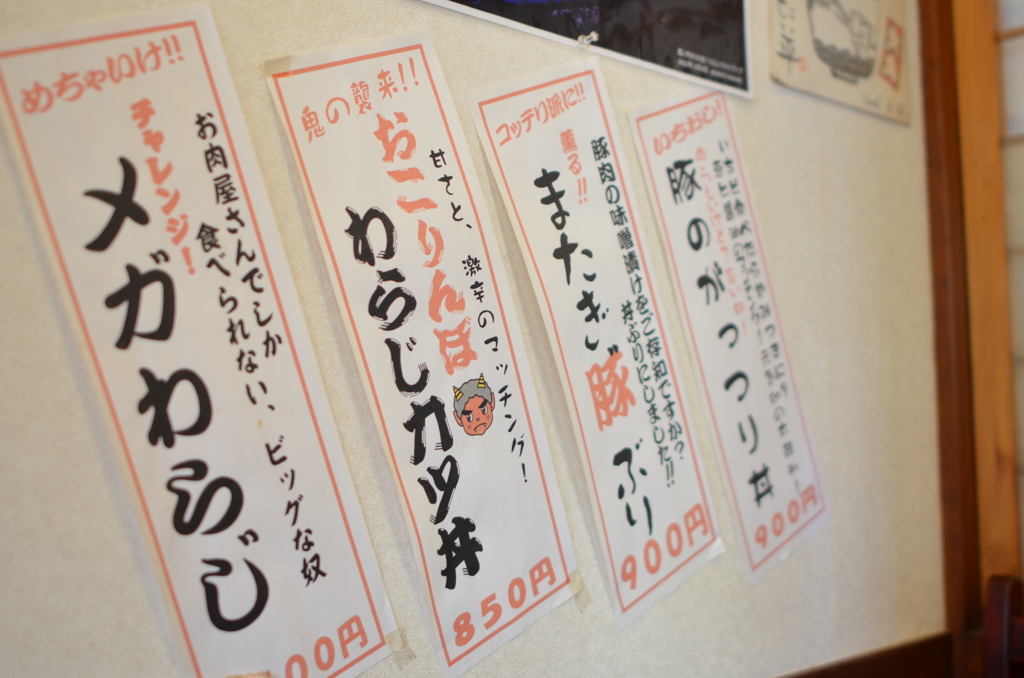 めちゃいけ!!
お肉屋さんでしか
食べられない、ビッグな奴
チャレンジ!
メガわらじ
00円
鬼の襲来!!
甘さと、激辛のマッチング!
おこりんぼ
わらじカツ丼
850円
コッテリ派に!!
豚肉の味噌漬けをご存知ですか?
丼ぶりにしました!!
薫る!!
またぎ豚ぶり
900円
いちおし!!
豚のがっつり丼
900円